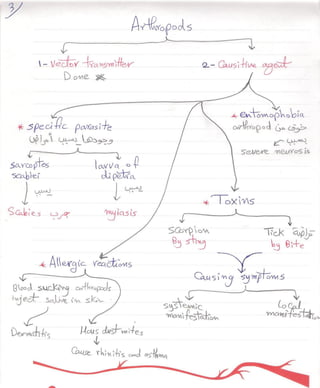 3
Arthropods
1- vector transmitter
Done
2- Causitive agent
* specific parasite
وجودها يسبب أمراض
* entomophobia
خوف من arthropod
يسبب
severe neurosis
sarcoptes
scabiei
يسبب
Scabies جرب
larva of
diptra
يسبب
myiasis
* Toxins
scorpion
By sting
Tick
by Bite
* Allergic reactions
Blood sucking arthropods
inject saliva in skin
Dermatitis
Hous dest mites
Cause rhinitis and asthma
Causing symptoms
systemic
manifestation
Local
manifestation